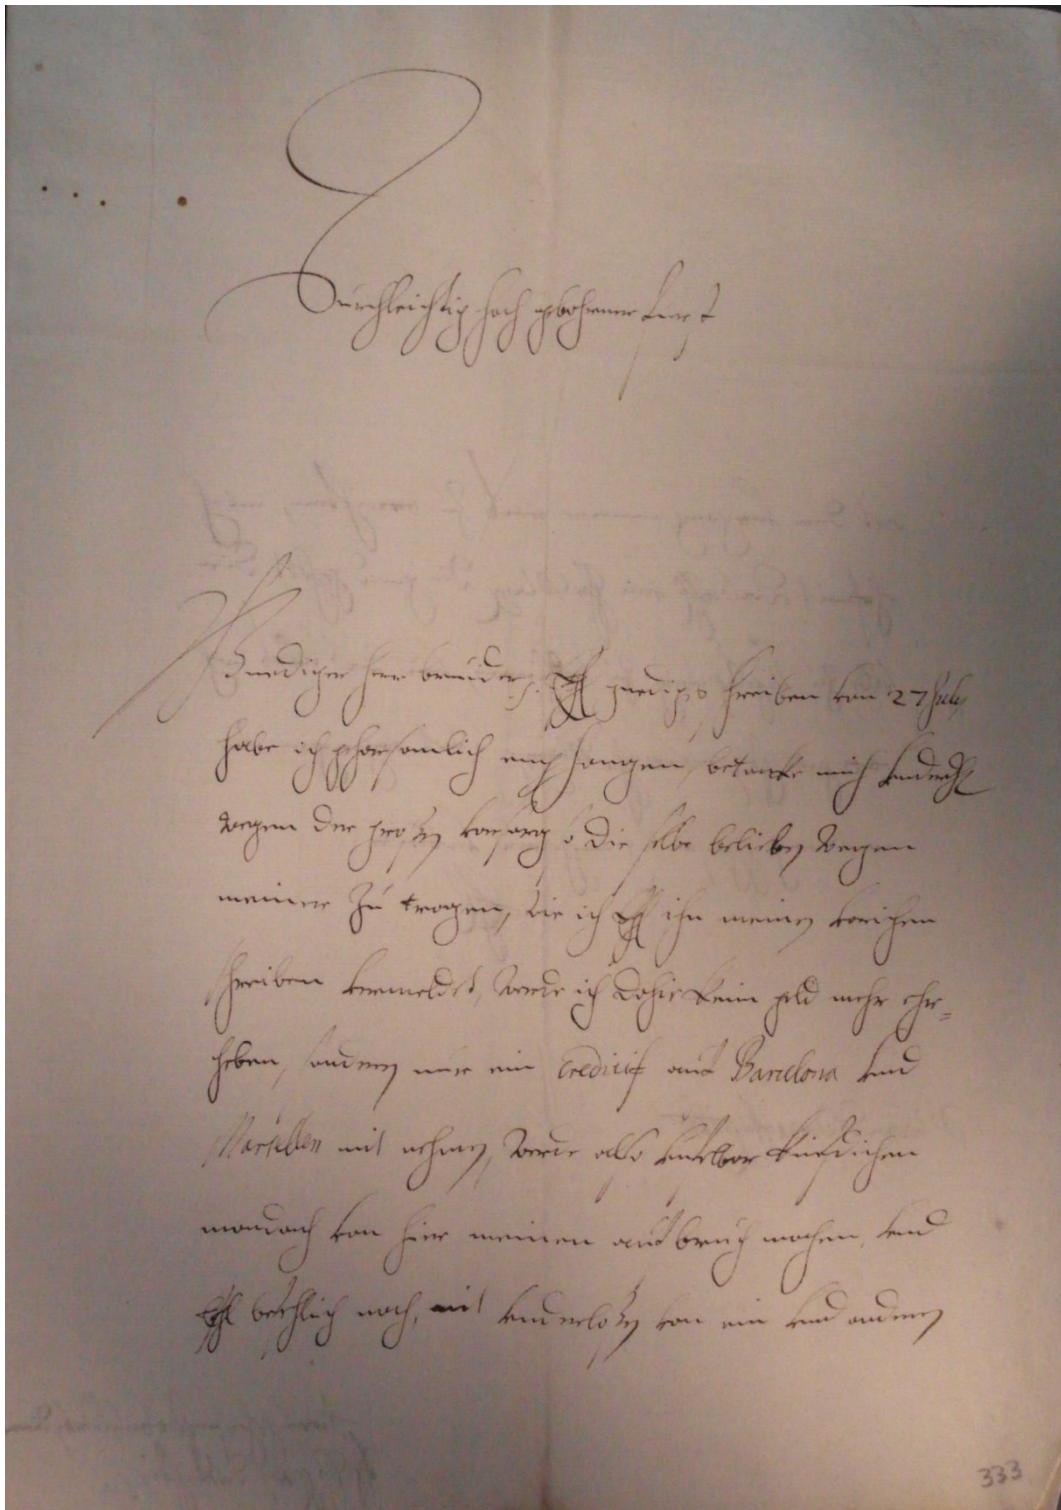 Durchleichtig hoch gebohrner fürst
Gnediger herr bruder, EFG gnediges schreiben von 27 July
habe ich gehorsamlich empfangen, betancke mich
wegen der grossen vorsorg so die selbe belieben wegen
meiner zu tragen, wie ich EFG ihn meinen vorichen
schreiben vermeldet, werde ich dahie kein geld mehr ehr=
heben, sondern nur ein creditif auf Barcelona vnd
Marsellen mit nehmen, werde also künfdichen
mondach von hier meinen auf bruch machen, vnd
EFG befehlich nach, nit vnderlassen von ein vnd andern
333